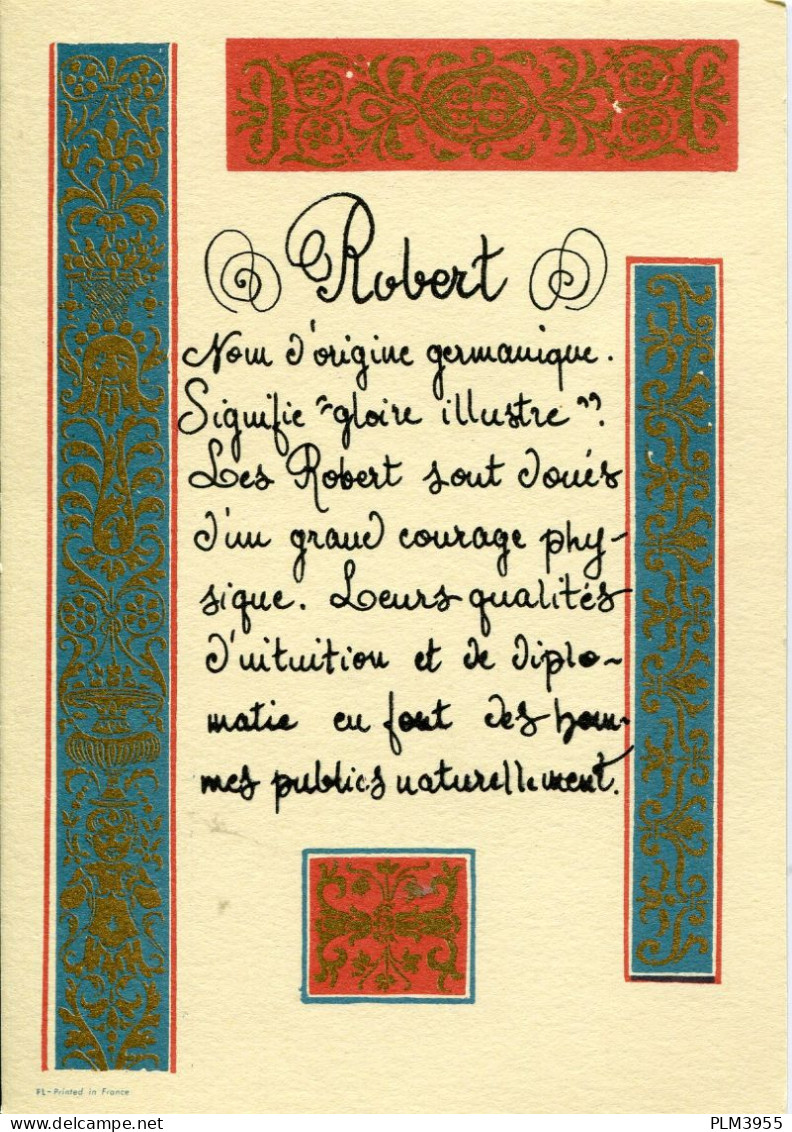 Robert
Nom d'origine germanique.
Signifie "gloire illustre".
Les Robert sont doués
d'un grand courage phy-
sique. Leurs qualités
d'intuition et de diplo-
matie en font des hom-
mes publics naturellement.
FL-Printed in France
delcampe.net
PLM3955